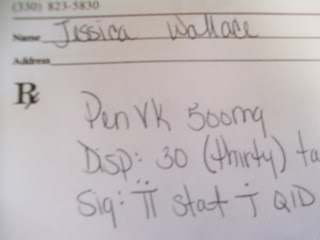 (330) 823-5830
Name Jessica Wallace
Address
Rx
Pen VK 500mg
Disp: 30 (thirty) ta
Sig: ïï stat ï QID